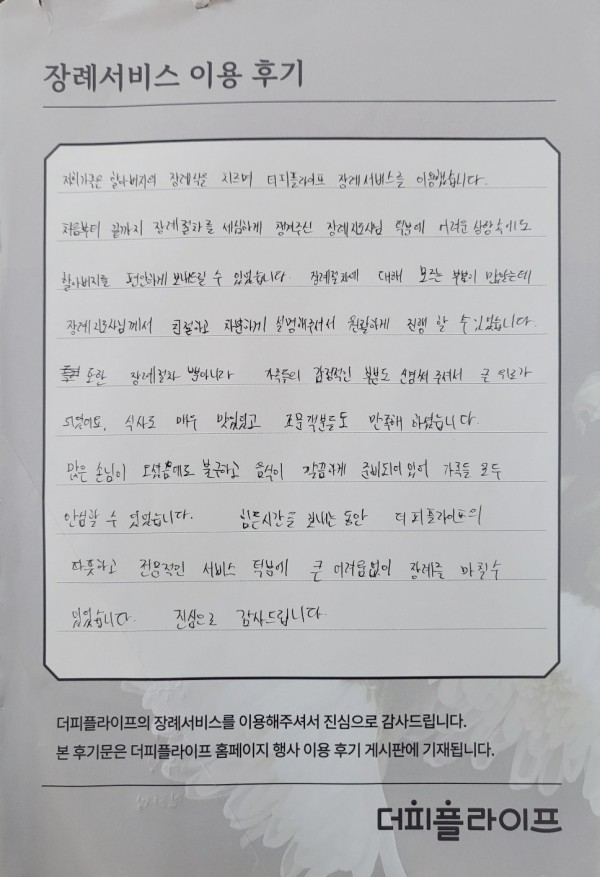 장례서비스 이용 후기
저희가족은 할아버지의 장례식을 치르며 더피플라이프 장례서비스를 이용했습니다.
처음부터 끝까지 장례절차를 세심하게 챙겨주신 장례지도사님 덕분에 어려운 상황속에도
할아버지를 편안하게 보내드릴 수 있었습니다. 장례절차에 대해 모르는 부분이 많았는데
장례지도사님께서 친절하고 차분하게 설명해주셔서 원활하게 진행 할 수 있었습니다.
또한 장례절차 뿐아니라 가족들의 감정적인 부분도 신경써 주셔서 큰 위로가
되었어요. 식사도 매우 맛있었고 조문객분들도 만족해 하셨습니다.
많은 손님이 오셨음에도 불구하고 음식이 깔끔하게 준비되어 있어 가족들 모두
안심할 수 있었습니다. 힘든시간을 보내는 동안 더피플라이프의
따뜻하고 전문적인 서비스 덕분에 큰 어려움없이 장례를 마칠수
있었습니다. 진심으로 감사드립니다.
더피플라이프의 장례서비스를 이용해주셔서 진심으로 감사드립니다.
본 후기문은 더피플라이프 홈페이지 행사 이용 후기 게시판에 기재됩니다.
더피플라이프